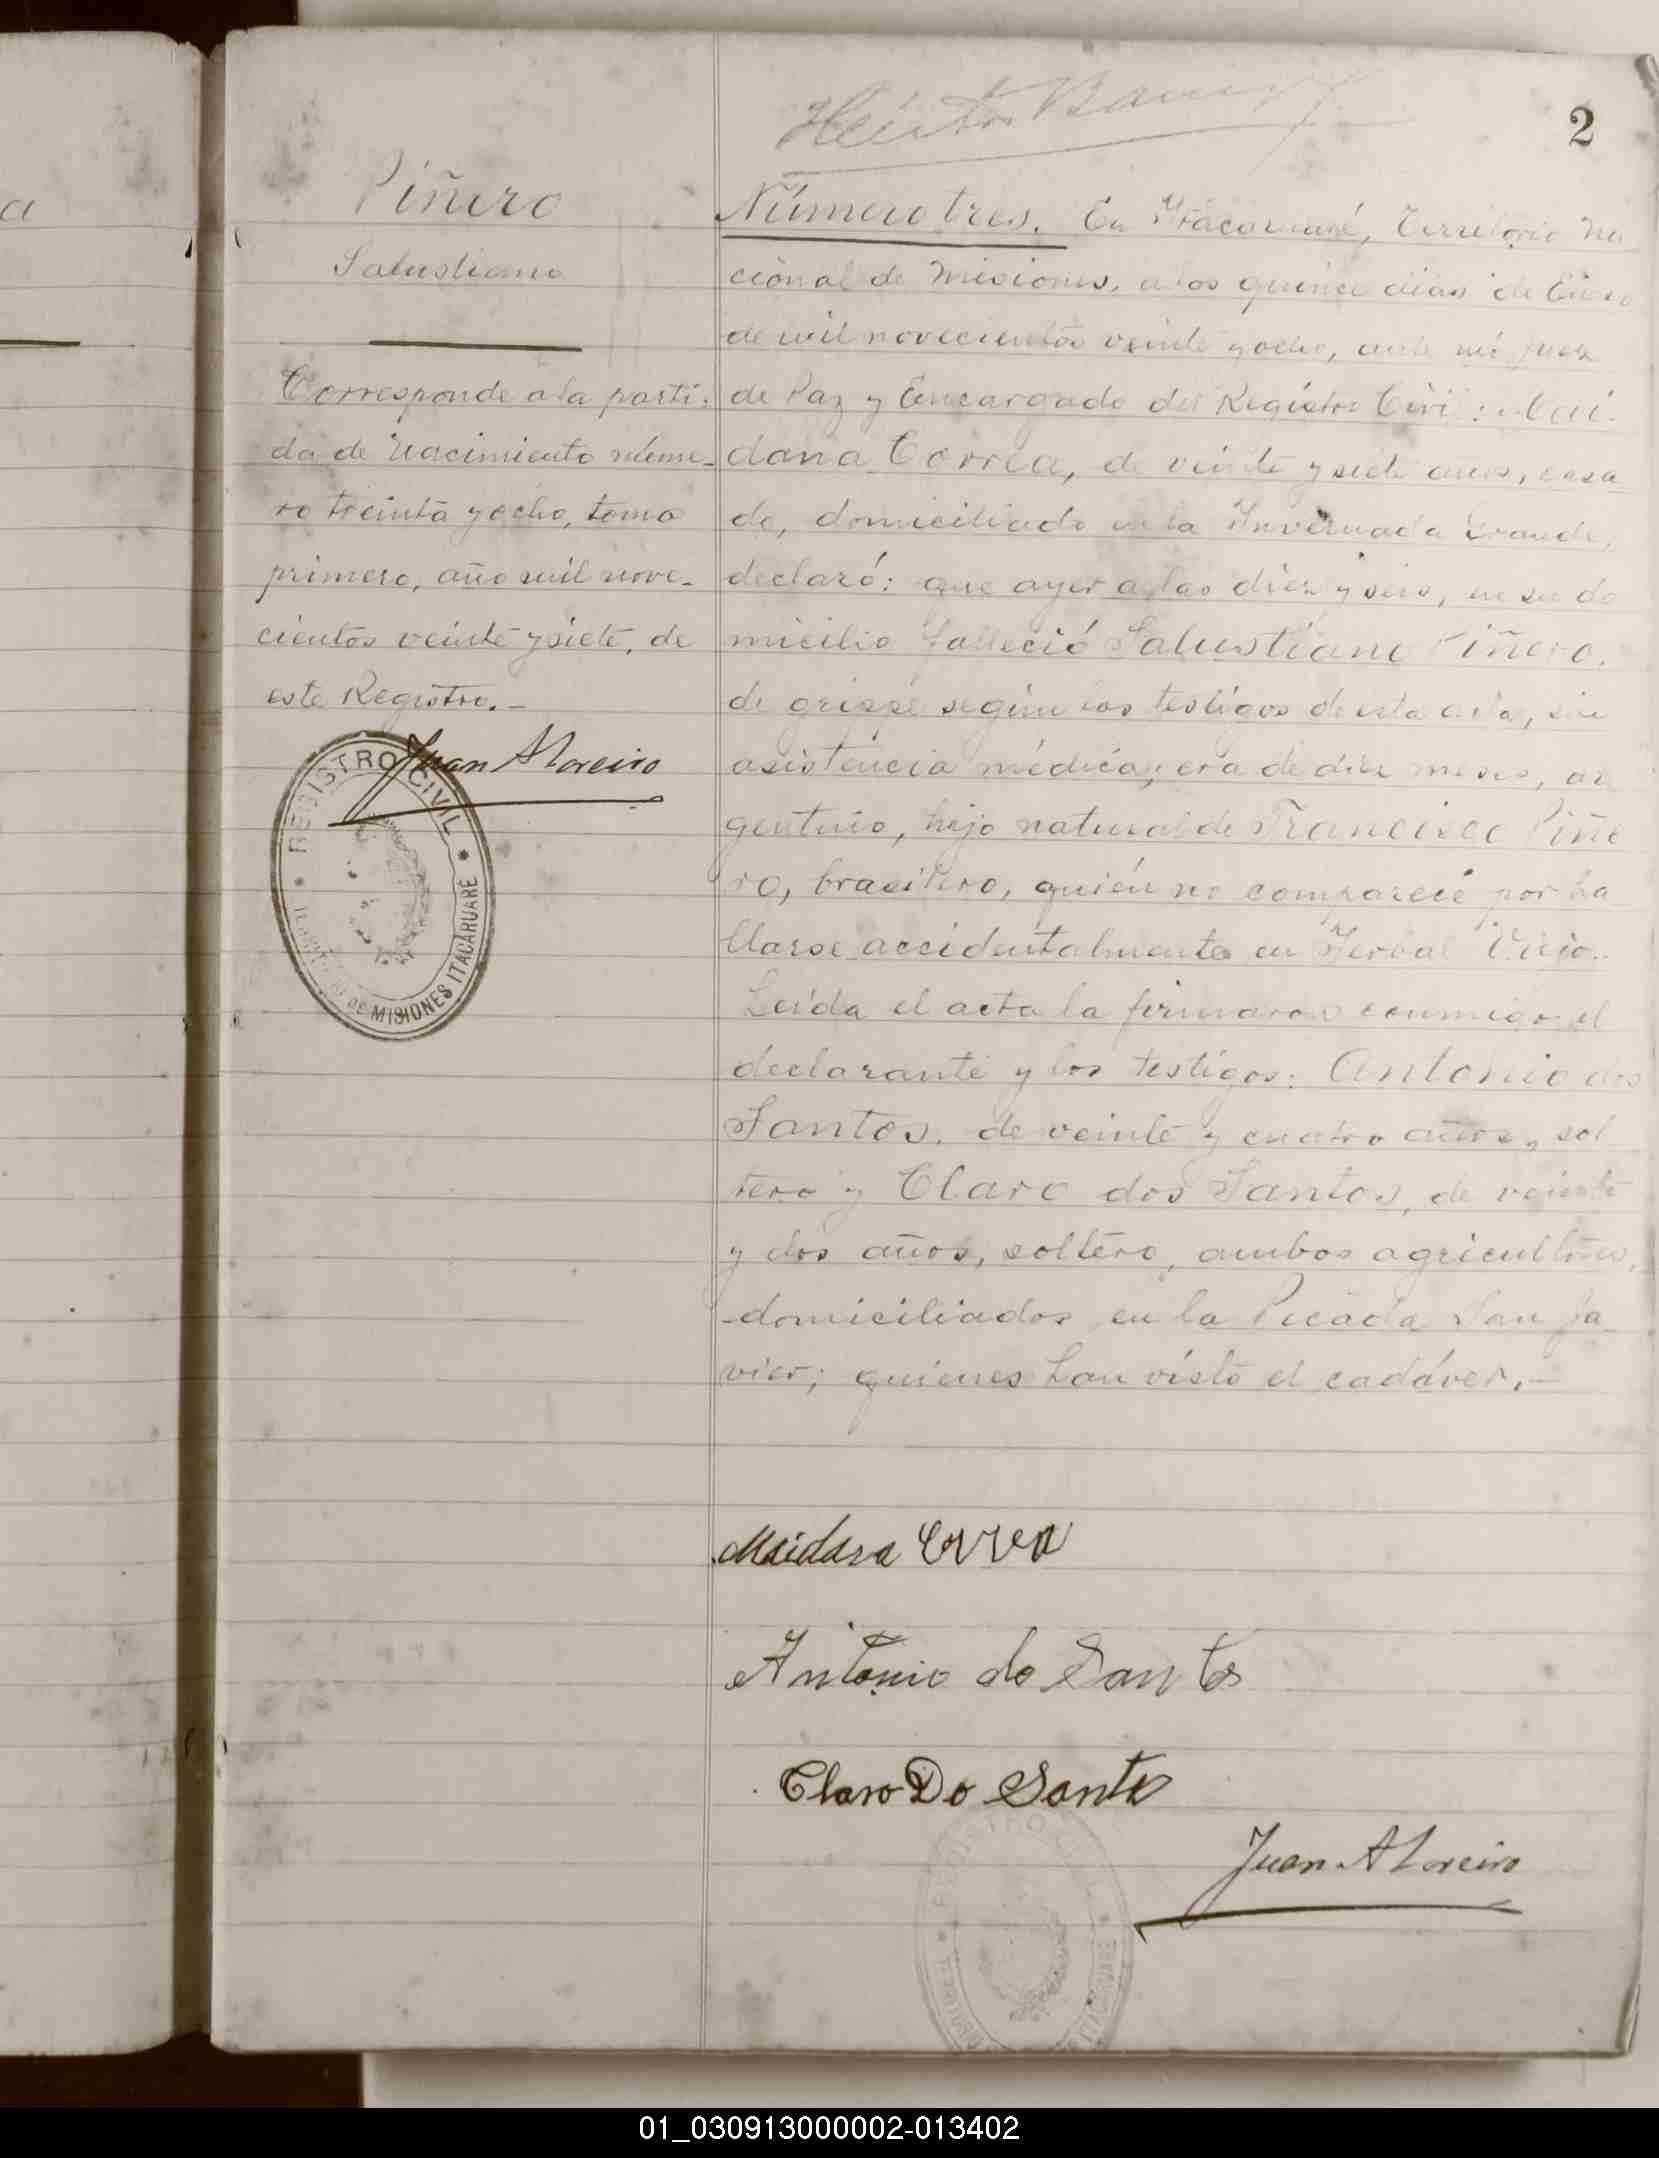 2
Piñero
Salustiano
Corresponde a la parti-
da de Nacimiento núme-
ro treinta y ocho, tomo
primero, año mil nove-
cientos veinte y siete, de
este Registro.-
Juan A Loreiro
REGISTRO CIVIL
MISIONES ITACARUARÉ
Número tres. En Itacaruaré, Territorio Na
cional de Misiones, a los quince dias de Enero
de mil novecientos veinte y ocho, ante mi Juez
de Paz y Encargado del Registro Civil: Mai-
dana Correa, de veinte y siete años, casa
do, domiciliado en la Invernada Grande,
declaró: que ayer a las diez y seis, en su do
micilio falleció Salustiano Piñero,
de grippe según los testigos de esta acta, sin
asistencia médica; era de diez meses, ar
gentino, hijo natural de Francisco Piñe
ro, brasilero, quién no compareció por ha
llarse accidentalmente en Yerbal Viejo.
Leída el acta la firmaron conmigo el
declarante y los testigos: Antonio dos
Santos, de veinte y cuatro años, sol
tero y Claro dos Santos, de veinte
y dos años, soltero, ambos agricultores,
domiciliados en la Picada San Ja
vier; quienes han visto el cadáver.-
Maidana Correa
Antonio do Santos
Claro Do Santos
Juan A Loreiro
REGISTRO CIVIL
ITACARUARÉ
01_030913000002-013402